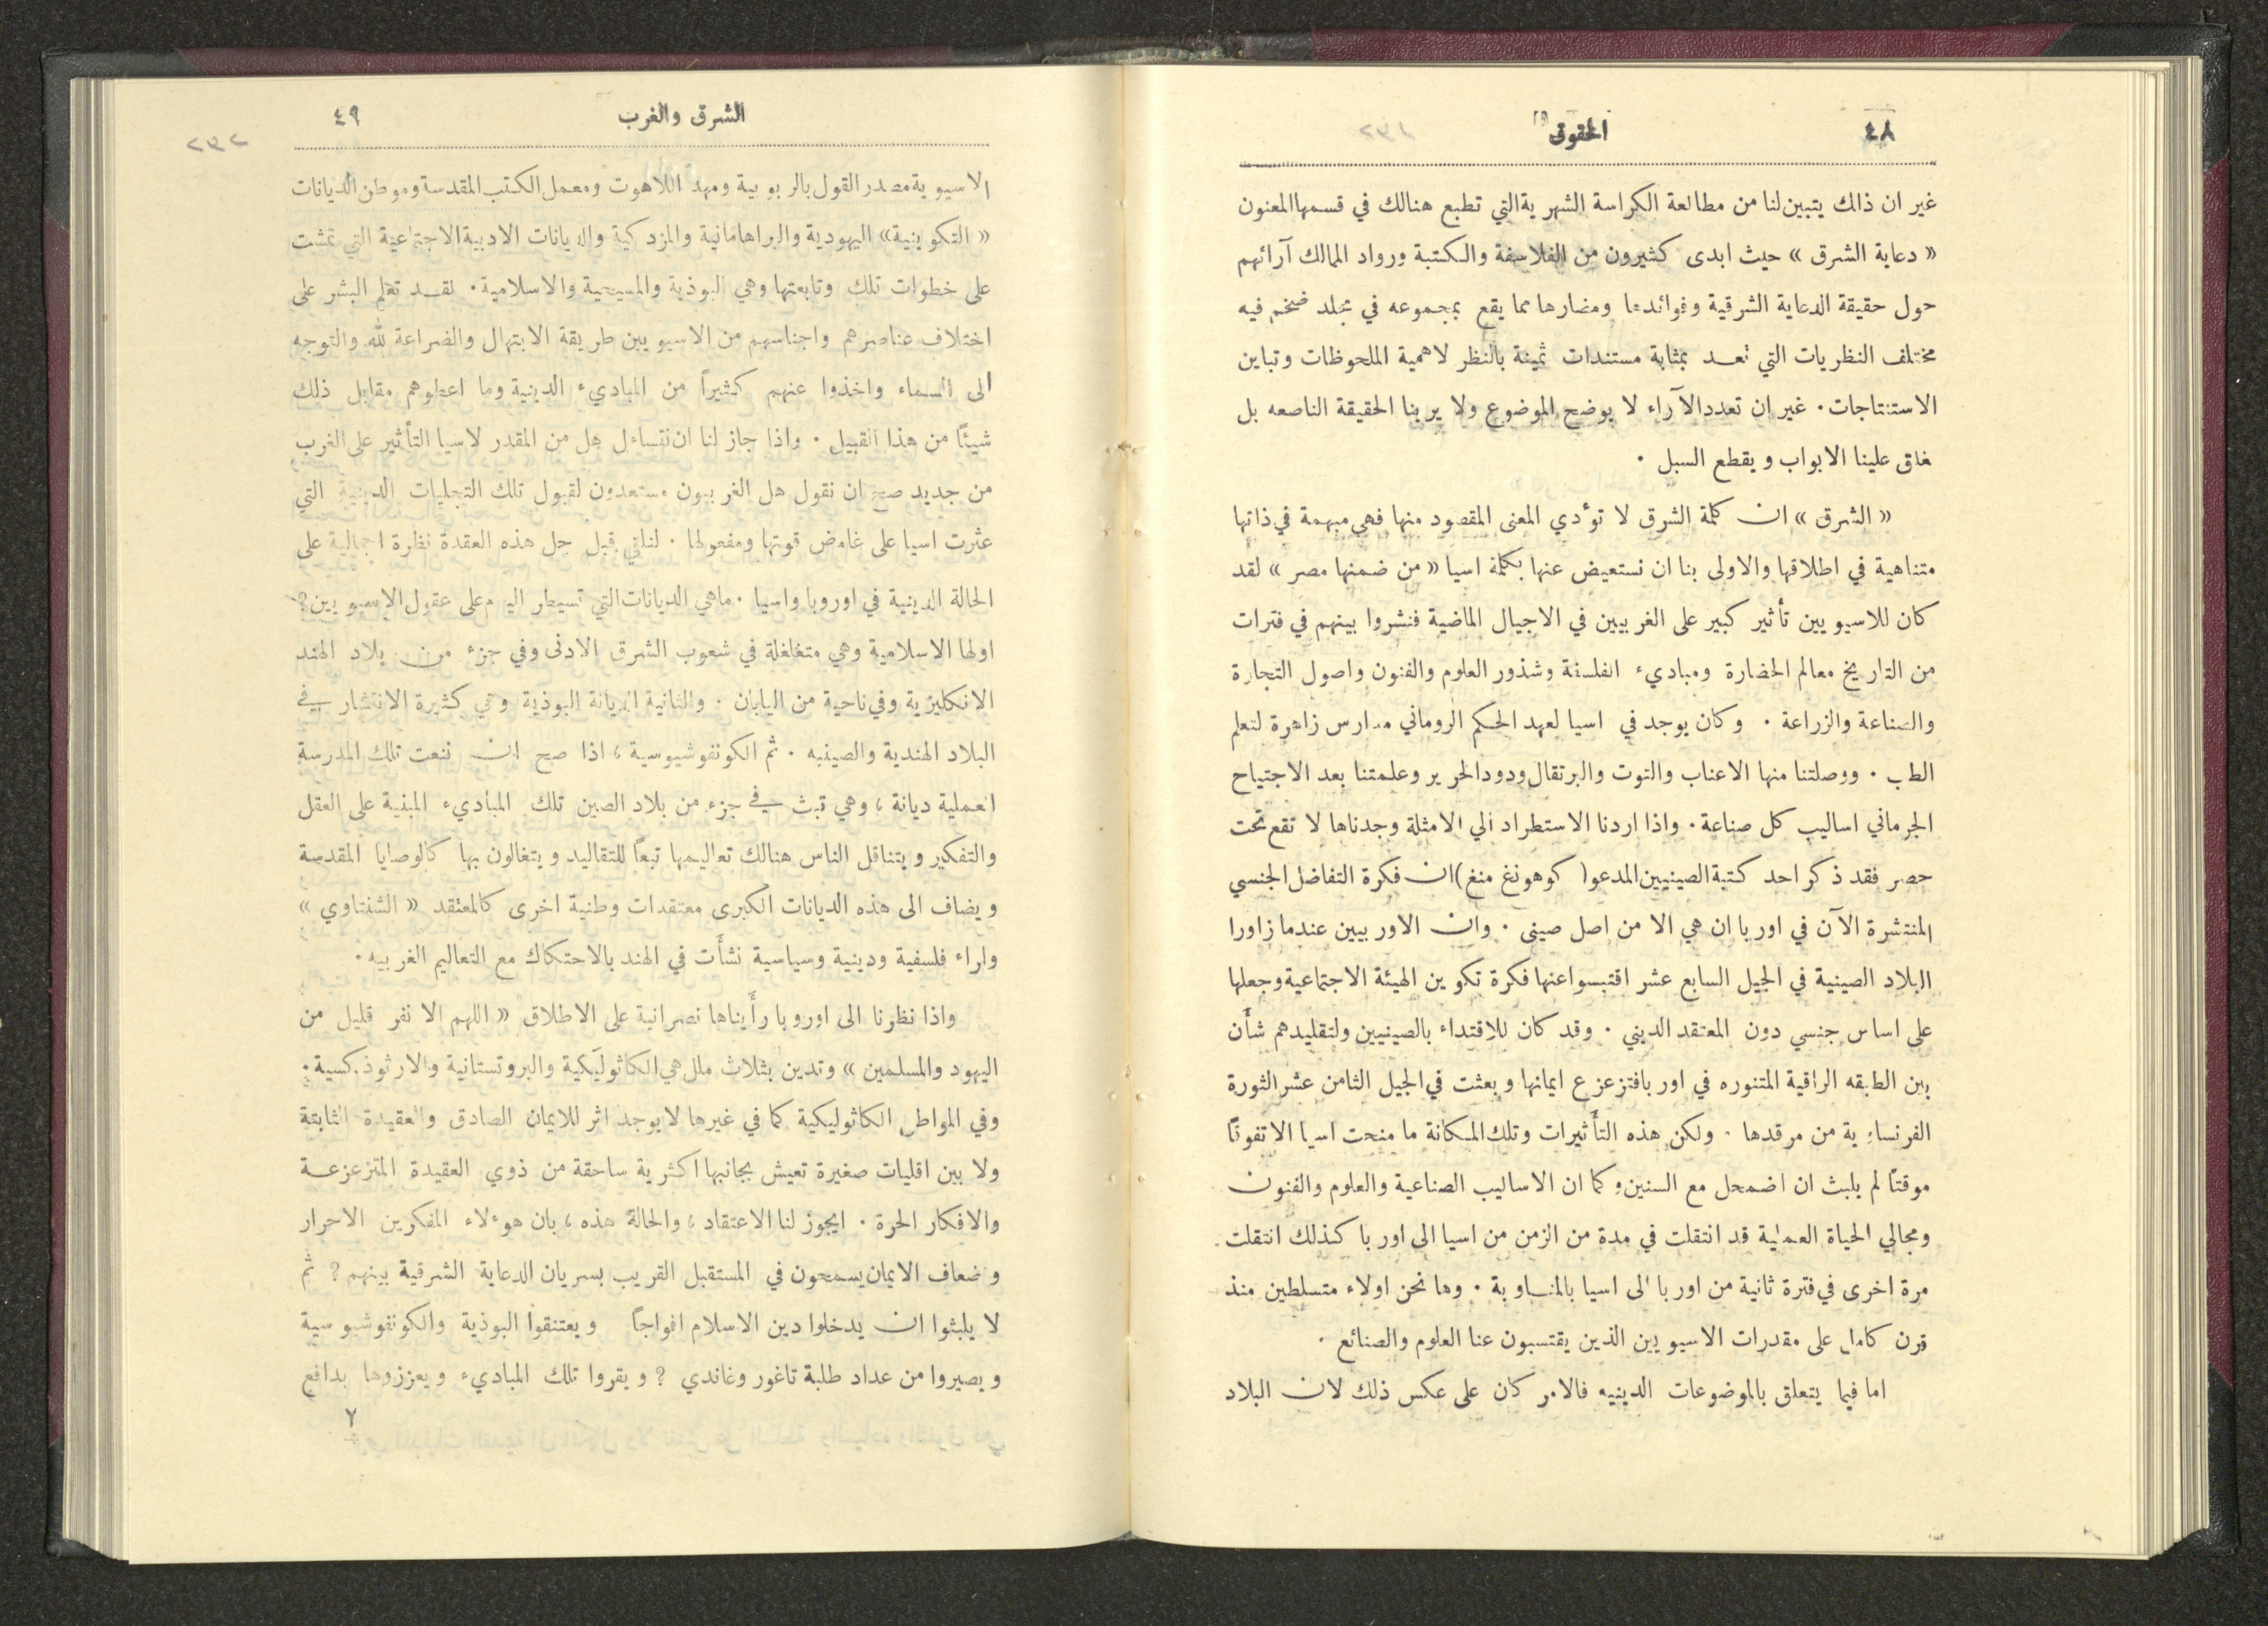 ٤٨
الحقوقي
غير ان ذالك يتبين لنا من مطالعة الكراسة الشهرية التي تطبع هنالك في قسمها المعنون
« دعاية الشرق » حيث ابدى كثيرون من الفلاسفة والكتبة ورواد الممالك آرائهم
حول حقيقة الدعاية الشرقية وفوائدها ومضارها مما يقع بمجموعه في مجلد ضخم فيه
مختلف النظريات التي تعد بمثابة مستندات ثمينة بالنظر لاهمية الملحوظات وتباين
الاستنتاجات . غير ان تعدد الآراء لا يوضح الموضوع ولا يرينا الحقيقة الناصعه بل
غلق علينا الابواب ويقطع السبل .
« الشرق » ان كلمة الشرق لا توٴدي المعنى المقصود منها فهي مبهمة في ذاتها
متناهية في اطلاقها والاولى بنا ان نستعيض عنها بكلمة اسيا « من ضمنها مصر » لقد
كان للاسيويين تأثير كبير على الغربيين في الاجيال الماضية فنشروا بينهم في فترات
من التاريخ معالم الحضارة ومباديء الفلسفة وشذور العلوم والفنون واصول التجارة
والصناعة والزراعة . وكان يوجد في اسيا لعهد الحكم الروماني مدارس زاهرة لتعلم
الطب . ووصلتنا منها الاعناب والتوت والبرتقال ودود الحرير وعلمتنا بعد الاجتياح
الجرماني اساليب كل صناعة . واذا اردنا الاستطراد الي الامثلة وجدناها لا تقع تحت
حصر فقد ذكر احد كتبة الصينيين المدعو ( كوهونغ منغ ) ان فكرة التفاضل الجنسي
المنتشرة الآن في اوربا ان هي الا من اصل صيني . وان الاوربيين عندما زاورا
البلاد الصينية في الجيل السابع عشر اقتبسوا عنها فكرة تكوين الهيئة الاجتماعية وجعلها
على اساس جنسي دون المعتقد الديني . وقد كان للاقتداء بالصينيين ولتقليدهم شأن
بين الطبقه الراقية المتنوره في اوربا فتزعزع ايمانها وبعثت في الجيل الثامن عشر الثورة
الفرنساوية من مرقدها . ولكن هذه التأثيرات وتلك المكانة ما منحت اسيا الا تفوقا
موقتا لم يلبث ان اضمحل مع السنين وكما ان الاساليب الصناعية والعلوم والفنون
ومجالي الحياة العملية قد انتقلت في مدة من الزمن من اسيا الى اوربا كذلك انتقلت
مرة اخرى في فترة ثانية من اوربا الى اسيا بالمناوبة . وها نحن اولاء متسلطين منذ
قرن كامل على مقدرات الاسيويين الذين يقتسبون عنا العلوم والصنائع .
اما فيما يتعلق بالموضوعات الدينيه فالامر كان على عكس ذلك لان البلاد
الشرق والغرب
٤٩
الاسيوية مصدر القول بالربوبية ومهد اللاهوت ومعمل الكتب المقدسة وموطن الديانات
« التكوينية » اليهودية والبراهمانية والمزدكية والديانات الادبية الاجتماعية التي تمشت
على خطوات تلك وتابعتها وهي البوذية والمسيحية والاسلامية . لقد تعلم البشر على
اختلاف عناصرهم واجناسهم من الاسيويين طريقة الابتهال والضراعة لله والتوجه
الى السماء واخذوا عنهم كثيراً من المباديء الدينية وما اعطوهم مقابل ذلك
شيئًا من هذا القبيل . واذا جاز لنا ان نتساءل هل من المقدر لاسيا التأثير على الغرب
من جديد صح ان نقول هل الغربيون مستعدون لقبول تلك التجليات الدينية التي
عثرت اسيا على غامض قوتها ومفعولها . لنلقي قبل حل هذه العقدة نظرة اجمالية على
الحالة الدينية في اوروبا واسيا . ماهي الديانات التي تسيطر اليوم على عقول الاسيويين ؟
اولها الاسلامية وهي متغلغلة في شعوب الشرق الادنى وفي جزء من بلاد الهند
الانكليزية وفي ناحية من اليابان . والثانية الديانة البوذية وهي كثيرة الانتشار في
البلاد الهندية والصينيه . ثم الكونفوشيوسية ، اذا صح ان ننعت تلك المدرسة
العملية ديانة ، وهي تبث في جزء من بلاد الصين تلك المباديء المبنية على العقل
والتفكير ويتناقل الناس هنالك تعاليمها تبعاً للتقاليد ويتغالون بها كالوصايا المقدسة
ويضاف الى هذه الديانات الكبرى معتقدات وطنية اخرى كالمعتقد « الشنتاوي »
واراء فلسفية ودينية وسياسية نشأت في الهند بالاحتكاك مع التعاليم الغربيه .
واذا نظرنا الى اوروبا رأيناها نصرانية على الاطلاق « اللهم الا نفر قليل من
اليهود والمسلمين » وتدين بثلاث ملل هي الكاثوليكية والبروتستانية والارثوذكسية .
وفي المواطن الكاثوليكية كما في غيرها لا يوجد اثر للايمان الصادق والعقيدة الثابتة
ولا بين اقليات صغيرة تعيش بجانبها اكثرية ساحقة من ذوي العقيدة المتزعزعة
والافكار الحرة . ايجوز لنا الاعتقاد ، والحالة هذه ، بان هوٴلاء المفكرين الاحرار
وضعاف الايمان يسمحون في المستقبل القريب بسريان الدعاية الشرقية بينهم ؟ ثم
لا يلبثوا ان يدخلوا دين الاسلام افواجاً ويعتنقوا البوذية والكونفوشيوسية
ويصيروا من عداد طلبة تاغور وغاندي ؟ ويقروا تلك المباديء ويعززوها بدافع
٧